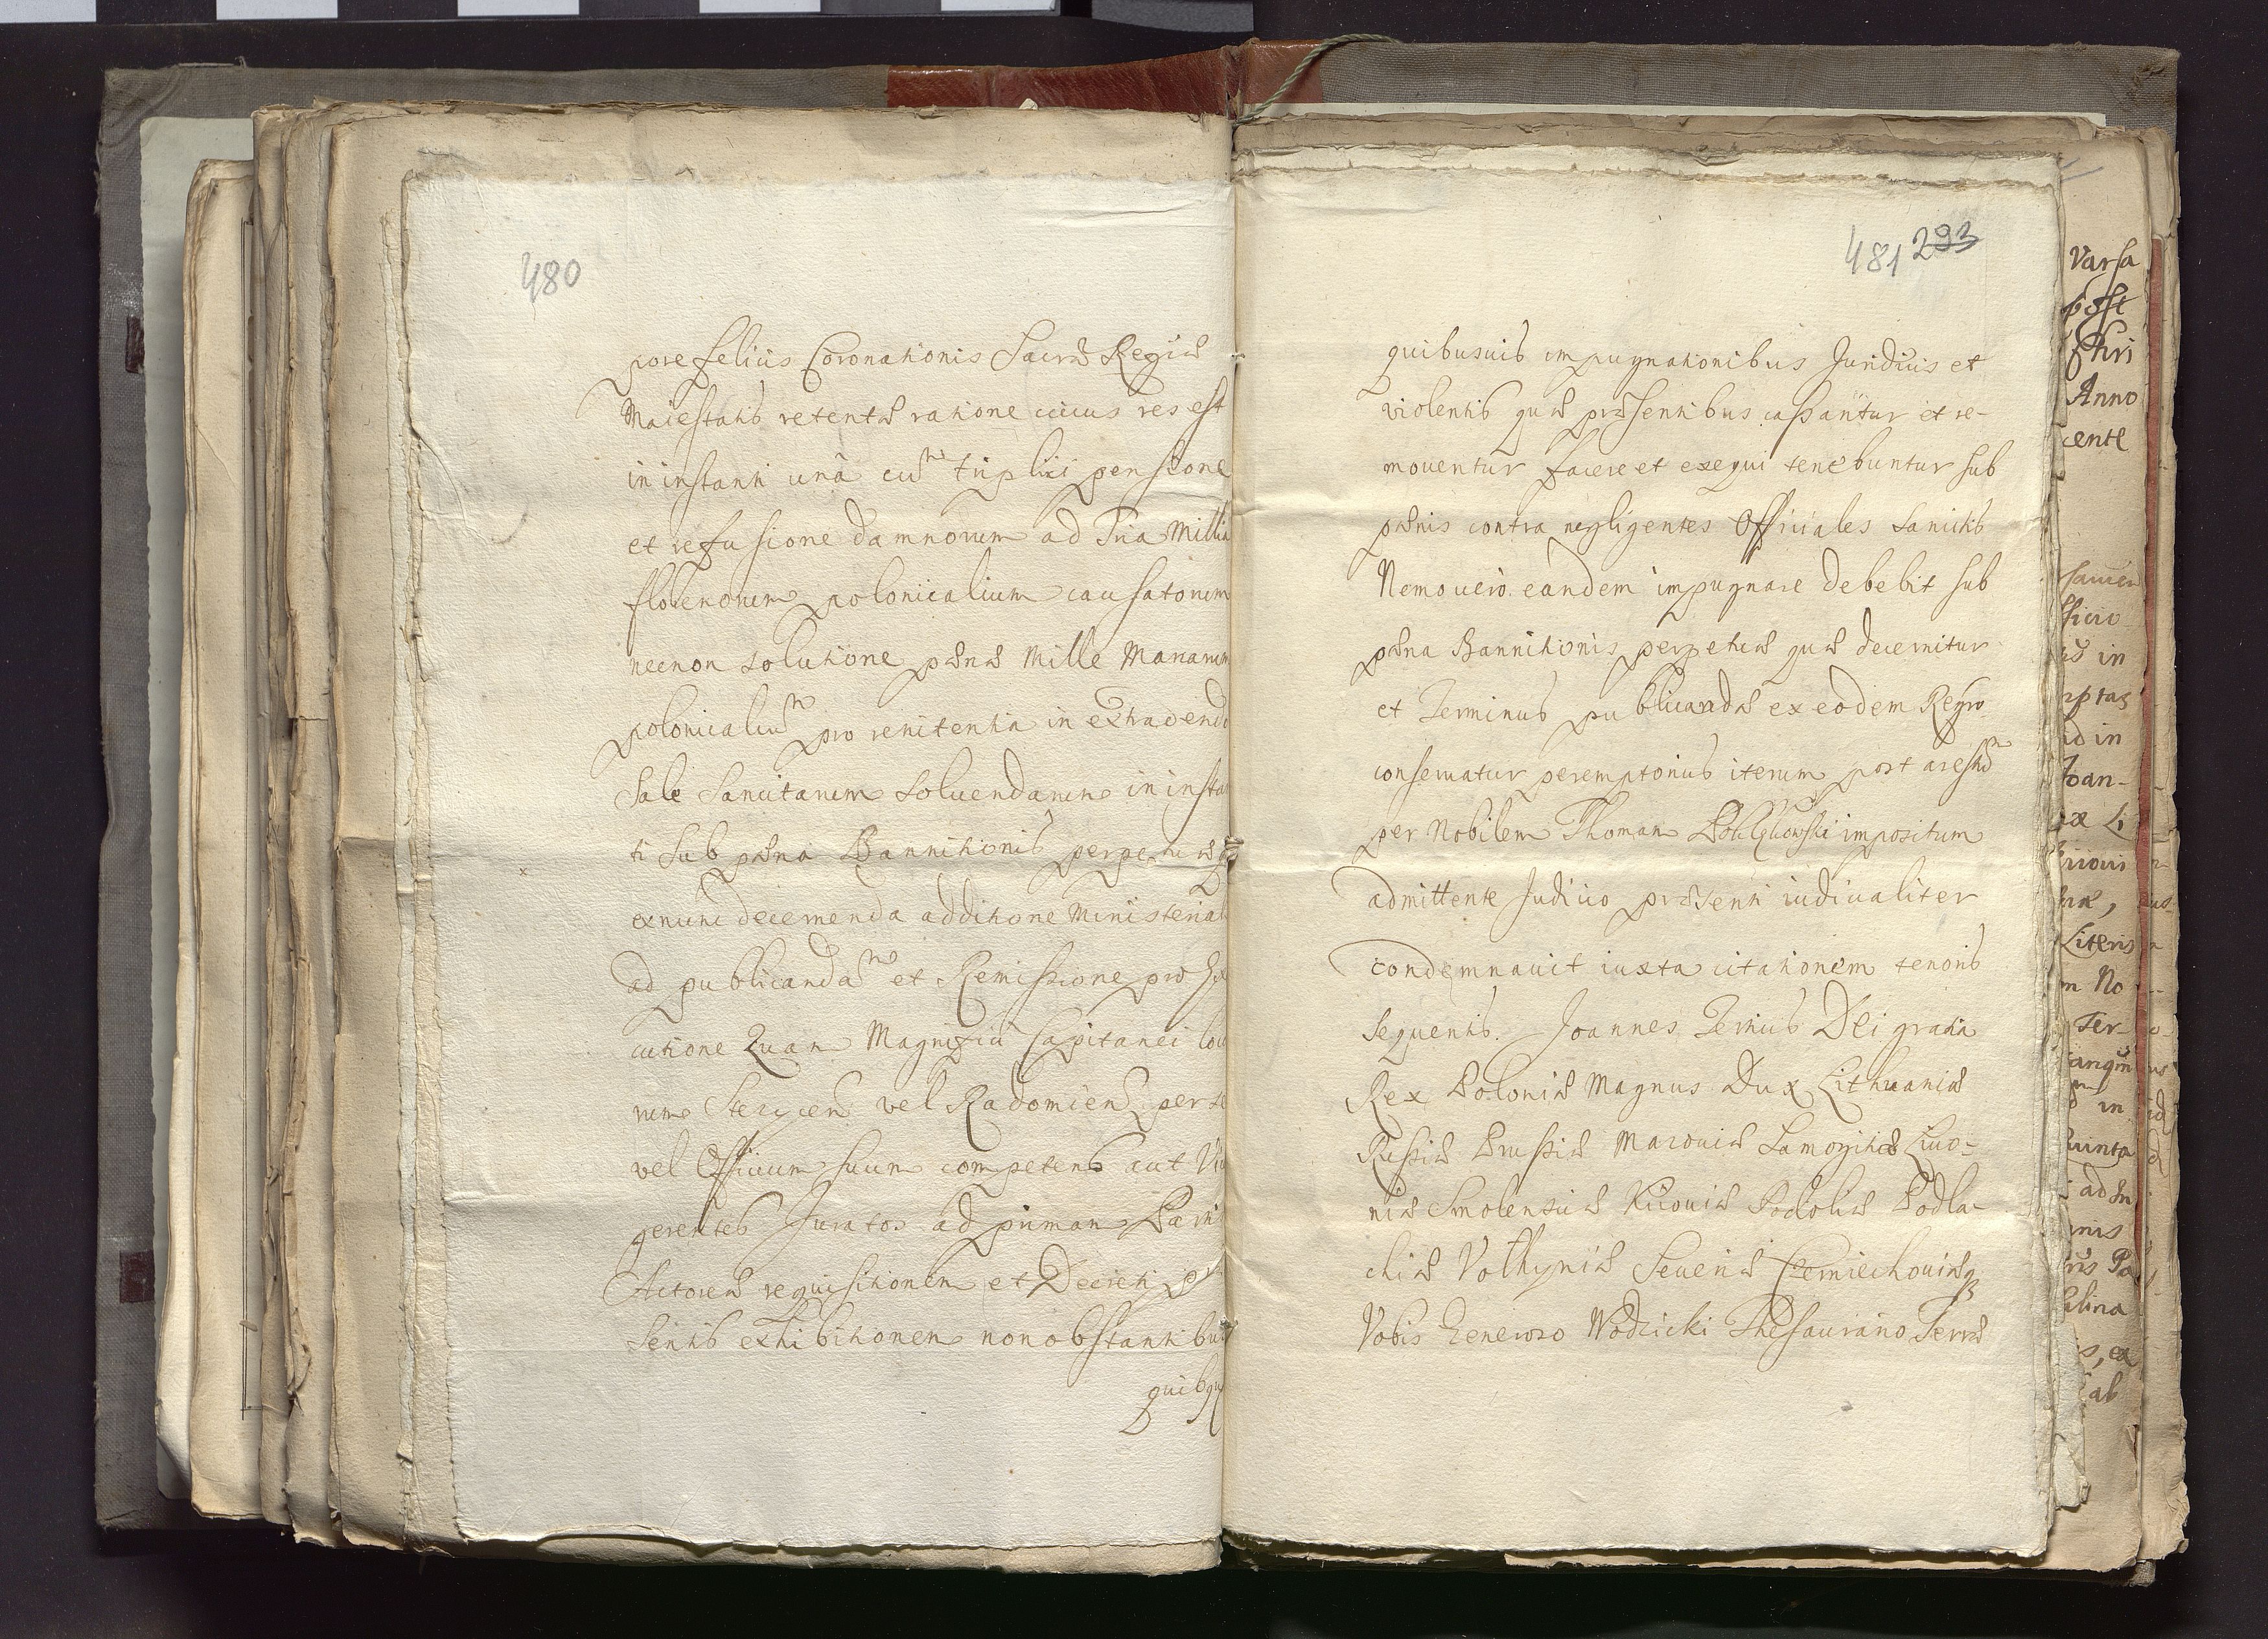 480
pore felicis Coronationis Sacræ Regiæ
Maiestatis retentæ ratione cuius res est
in instanti unà cum triplici pensione
et refusione damnorum ad Tria Millia
florenorum polonicalium causatorum
necnon solutione pænæ Mille Marcarum
polonicalium pro renitentia in extradendo
Sale Sancitarum soluendarum in instan
ti sub pæna Bannitionis perpetuæ
exnunc decernenda additione Ministerial
ad publicandam et Remissione pro Exe
cutione Quam Magnifici Capitanei loco
rum Stezycen vel Radomien per se
vel Officium suum competens aut Vice
gerentes Juratos ad primam Partis
Actoreæ requisitionem et Decreti præ
sentis exhibitionem non obstantibus
quibus
481 293
quibusuis impugnationibus Juridicis et
violentis quæ præsentibus cassantur et re-
mouentur facere et exequi tenebuntur sub
pænis contra negligentes Officiales Sancitis
Nemo uero eandem impugnare debebit sub
pæna Bannitionis perpetuæ quæ decernitur
et Terminus publicandæ ex eodem Regro
conseruatur peremptorius iterum post arestum
per Nobilem Thomam impositum
admittente Judicio præsenti iudicialiter
condemnauit iuxta citationem tenoris
sequentis. Joannes Tertius Dei gratia
Rex Poloniæ Magnus Dux Lithuaniæ
Russiæ Prussiæ Mazouiæ Samogitiæ Liuo-
niæ Smolensciæ Kiiouiæ Podoliæ Podla-
chiæ Volhyniæ Seueriæ Czerniechouiæq
Vobis Generoso Wodzicki Thesaurario Terræ
Varsa
post
Chri
Anno
cente
in
ptas
id in
Joan-
Literis
m No
Ter
in
uinta
ad In
Pa
alina
ab